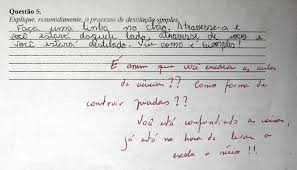 Questão 5.
Explique, resumidamente, o processo de destilação simples.
Faça uma linha no chão. Atravesse-a e
você estará daquele lado, atravesse de novo e
você estará destelado. Viu como é simples?
É assim que você encara as aulas
de ciências?? Como forma de
contruir piadas??
Você está confundindo as coisas,
já está na hora de levar a
escola a sério!!